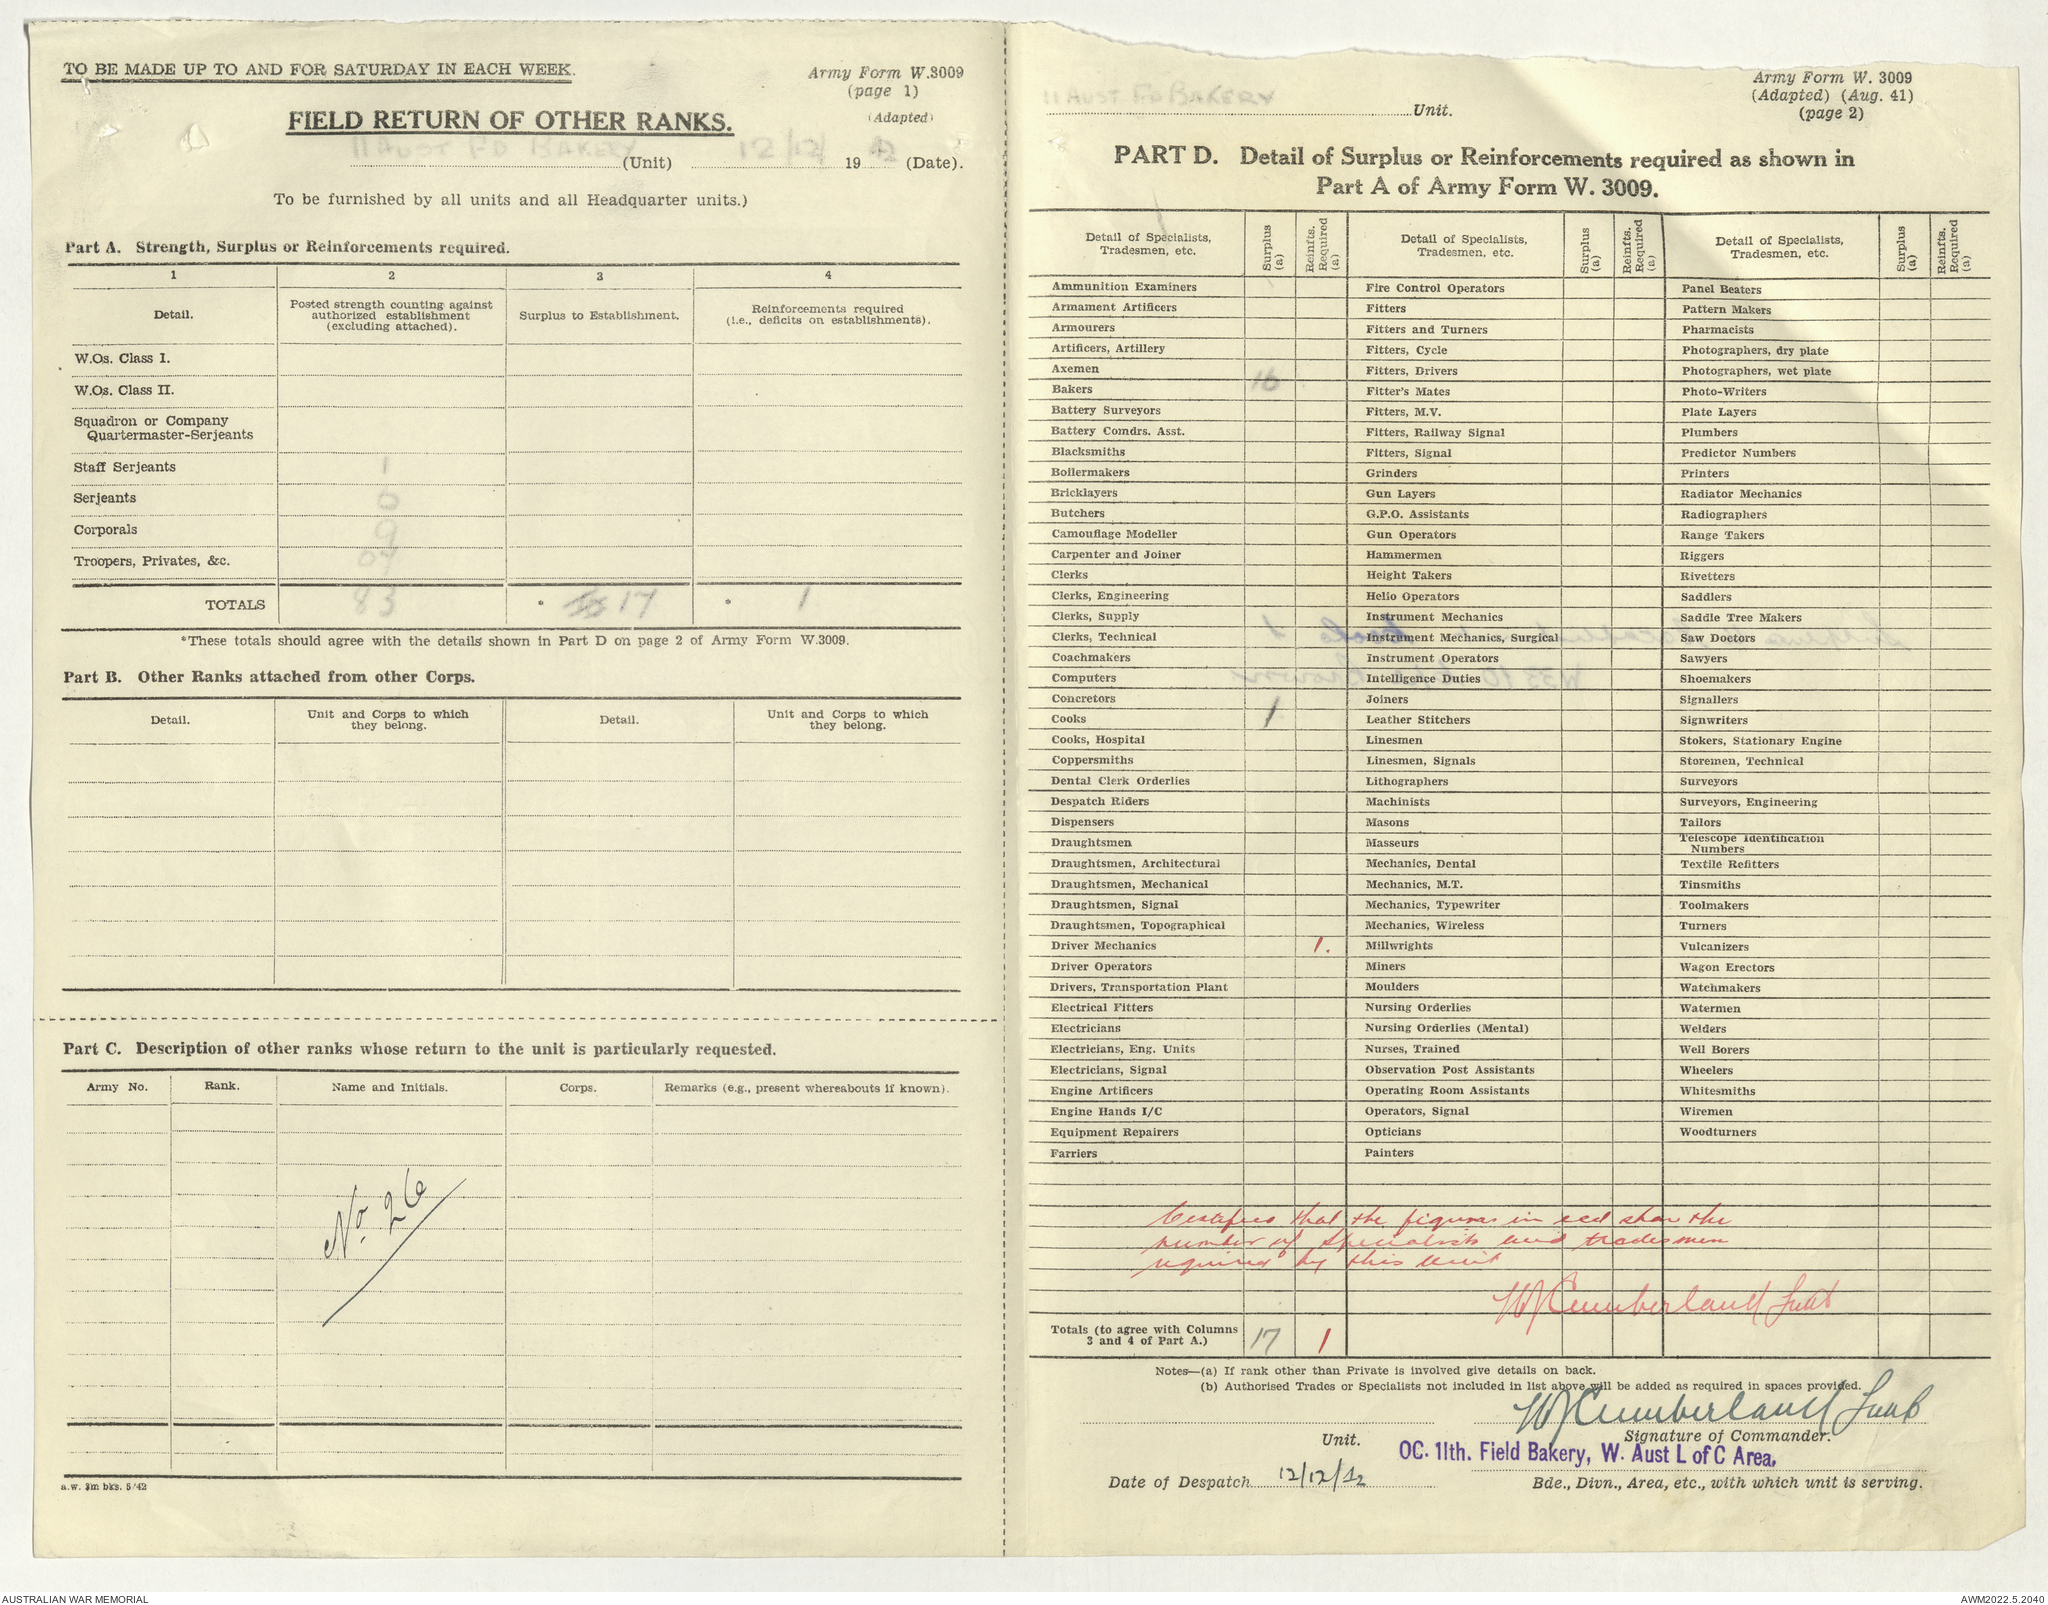 TO BE MADE UP TO AND FOR SATURDAY IN EACH WEEK.
Army Form W.3009
(page 1)
(Adapted)
FIELD RETURN OF OTHER RANKS.
11 AUST FD BAKERY (Unit) 12/12/ 1942 (Date).
To be furnished by all units and all Headquarter units.)
Part A. Strength, Surplus or Reinforcements required.
1 2 3 4
Detail. Posted strength counting against authorized establishment (excluding attached). Surplus to Establishment. Reinforcements required (i.e., deficits on establishments).
W.Os. Class I.
W.Os. Class II.
Squadron or Company Quartermaster-Serjeants
Staff Serjeants 1
Serjeants
Corporals 9
Troopers, Privates, &c.
TOTALS 83 * 17 * 1
*These totals should agree with the details shown in Part D on page 2 of Army Form W.3009.
Part B. Other Ranks attached from other Corps.
Detail. Unit and Corps to which they belong. Detail. Unit and Corps to which they belong.
Part C. Description of other ranks whose return to the unit is particularly requested.
Army No. Rank. Name and Initials. Corps. Remarks (e.g., present whereabouts if known).
No. 26
a.w. 3m bks. 5/42
Army Form W. 3009
(Adapted) (Aug. 41)
(page 2)
11 AUST FD BAKERY Unit.
PART D. Detail of Surplus or Reinforcements required as shown in
Part A of Army Form W. 3009.
Detail of Specialists, Tradesmen, etc. Surplus (a) Reinfts. Required (a) Detail of Specialists, Tradesmen, etc. Surplus (a) Reinfts. Required (a) Detail of Specialists, Tradesmen, etc. Surplus (a) Reinfts. Required (a)
Ammunition Examiners Fire Control Operators Panel Beaters
Armament Artificers Fitters Pattern Makers
Armourers Fitters and Turners Pharmacists
Artificers, Artillery Fitters, Cycle Photographers, dry plate
Axemen Fitters, Drivers Photographers, wet plate
Bakers 16 Fitter's Mates Photo-Writers
Battery Surveyors Fitters, M.V. Plate Layers
Battery Comdrs. Asst. Fitters, Railway Signal Plumbers
Blacksmiths Fitters, Signal Predictor Numbers
Boilermakers Grinders Printers
Bricklayers Gun Layers Radiator Mechanics
Butchers G.P.O. Assistants Radiographers
Camouflage Modeller Gun Operators Range Takers
Carpenter and Joiner Hammermen Riggers
Clerks Height Takers Rivetters
Clerks, Engineering Helio Operators Saddlers
Clerks, Supply Instrument Mechanics Saddle Tree Makers
Clerks, Technical Instrument Mechanics, Surgical Saw Doctors
Coachmakers Instrument Operators Sawyers
Computers Intelligence Duties Shoemakers
Concretors Joiners Signallers
Cooks 1 Leather Stitchers Signwriters
Cooks, Hospital Linesmen Stokers, Stationary Engine
Coppersmiths Linesmen, Signals Storemen, Technical
Dental Clerk Orderlies Lithographers Surveyors
Despatch Riders Machinists Surveyors, Engineering
Dispensers Masons Tailors
Draughtsmen Masseurs Telescope Identification Numbers
Draughtsmen, Architectural Mechanics, Dental Textile Refitters
Draughtsmen, Mechanical Mechanics, M.T. Tinsmiths
Draughtsmen, Signal Mechanics, Typewriter Toolmakers
Draughtsmen, Topographical Mechanics, Wireless Turners
Driver Mechanics 1. Millwrights Vulcanizers
Driver Operators Miners Wagon Erectors
Drivers, Transportation Plant Moulders Watchmakers
Electrical Fitters Nursing Orderlies Watermen
Electricians Nursing Orderlies (Mental) Welders
Electricians, Eng. Units Nurses, Trained Well Borers
Electricians, Signal Observation Post Assistants Wheelers
Engine Artificers Operating Room Assistants Whitesmiths
Engine Hands I/C Operators, Signal Wiremen
Equipment Repairers Opticians Woodturners
Farriers Painters
Certified that the figures in red show the
number of specialists and tradesmen
required by this unit
WJ Cumberland Lieut
Totals (to agree with Columns 3 and 4 of Part A.) 17 1
Notes—(a) If rank other than Private is involved give details on back.
(b) Authorised Trades or Specialists not included in list above will be added as required in spaces provided.
WJ Cumberland Lieut
Unit. Signature of Commander.
OC. 11th. Field Bakery, W. Aust L of C Area.
Date of Despatch 12/12/42 Bde., Divn., Area, etc., with which unit is serving.
AUSTRALIAN WAR MEMORIAL
AWM2022.5.2040